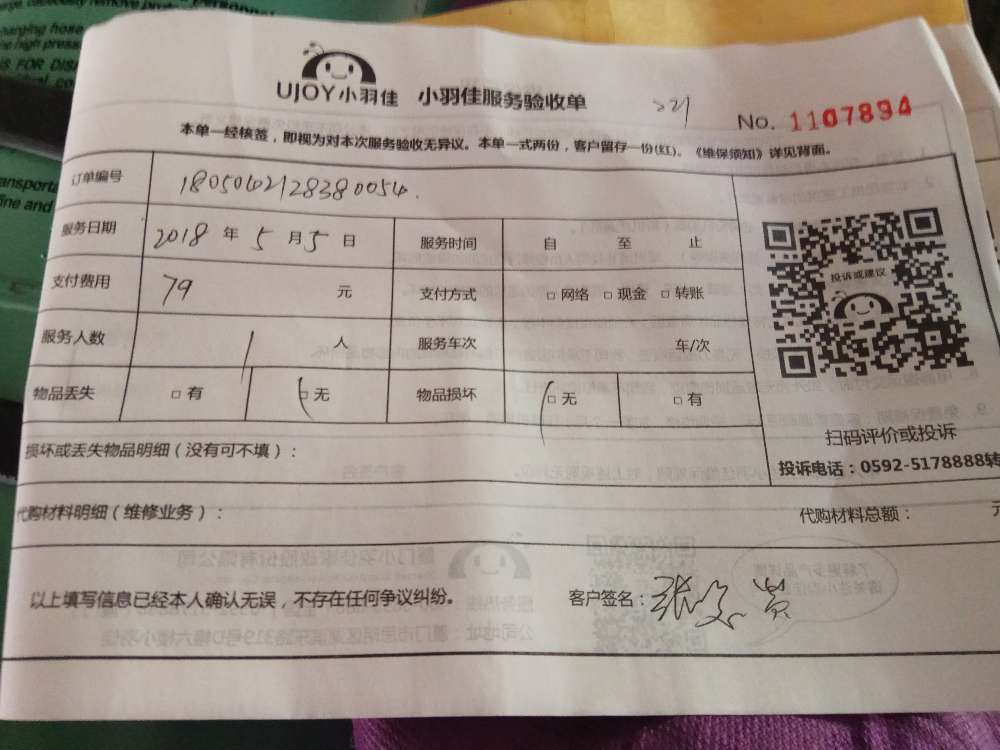 UJOY小羽佳 小羽佳服务验收单
No. 1107894
本单一经核签，即视为对本次服务验收无异议。本单一式两份，客户留存一份(红)。《维保须知》详见背面。
订单编号
服务日期 2018 年 5 月 5 日 服务时间 自 至 止
支付费用 79 元 支付方式 □ 网络 □ 现金 □ 转账
服务人数 1 人 服务车次 车/次
物品丢失 □ 有 □ 无 物品损坏 □ 无 □ 有
投诉或建议
扫码评价或投诉
投诉电话：0592-5178888转
损坏或丢失物品明细（没有可不填）：
代购材料明细（维修业务）： 代购材料总额： 元
以上填写信息已经本人确认无误，不存在任何争议纠纷。 客户签名：